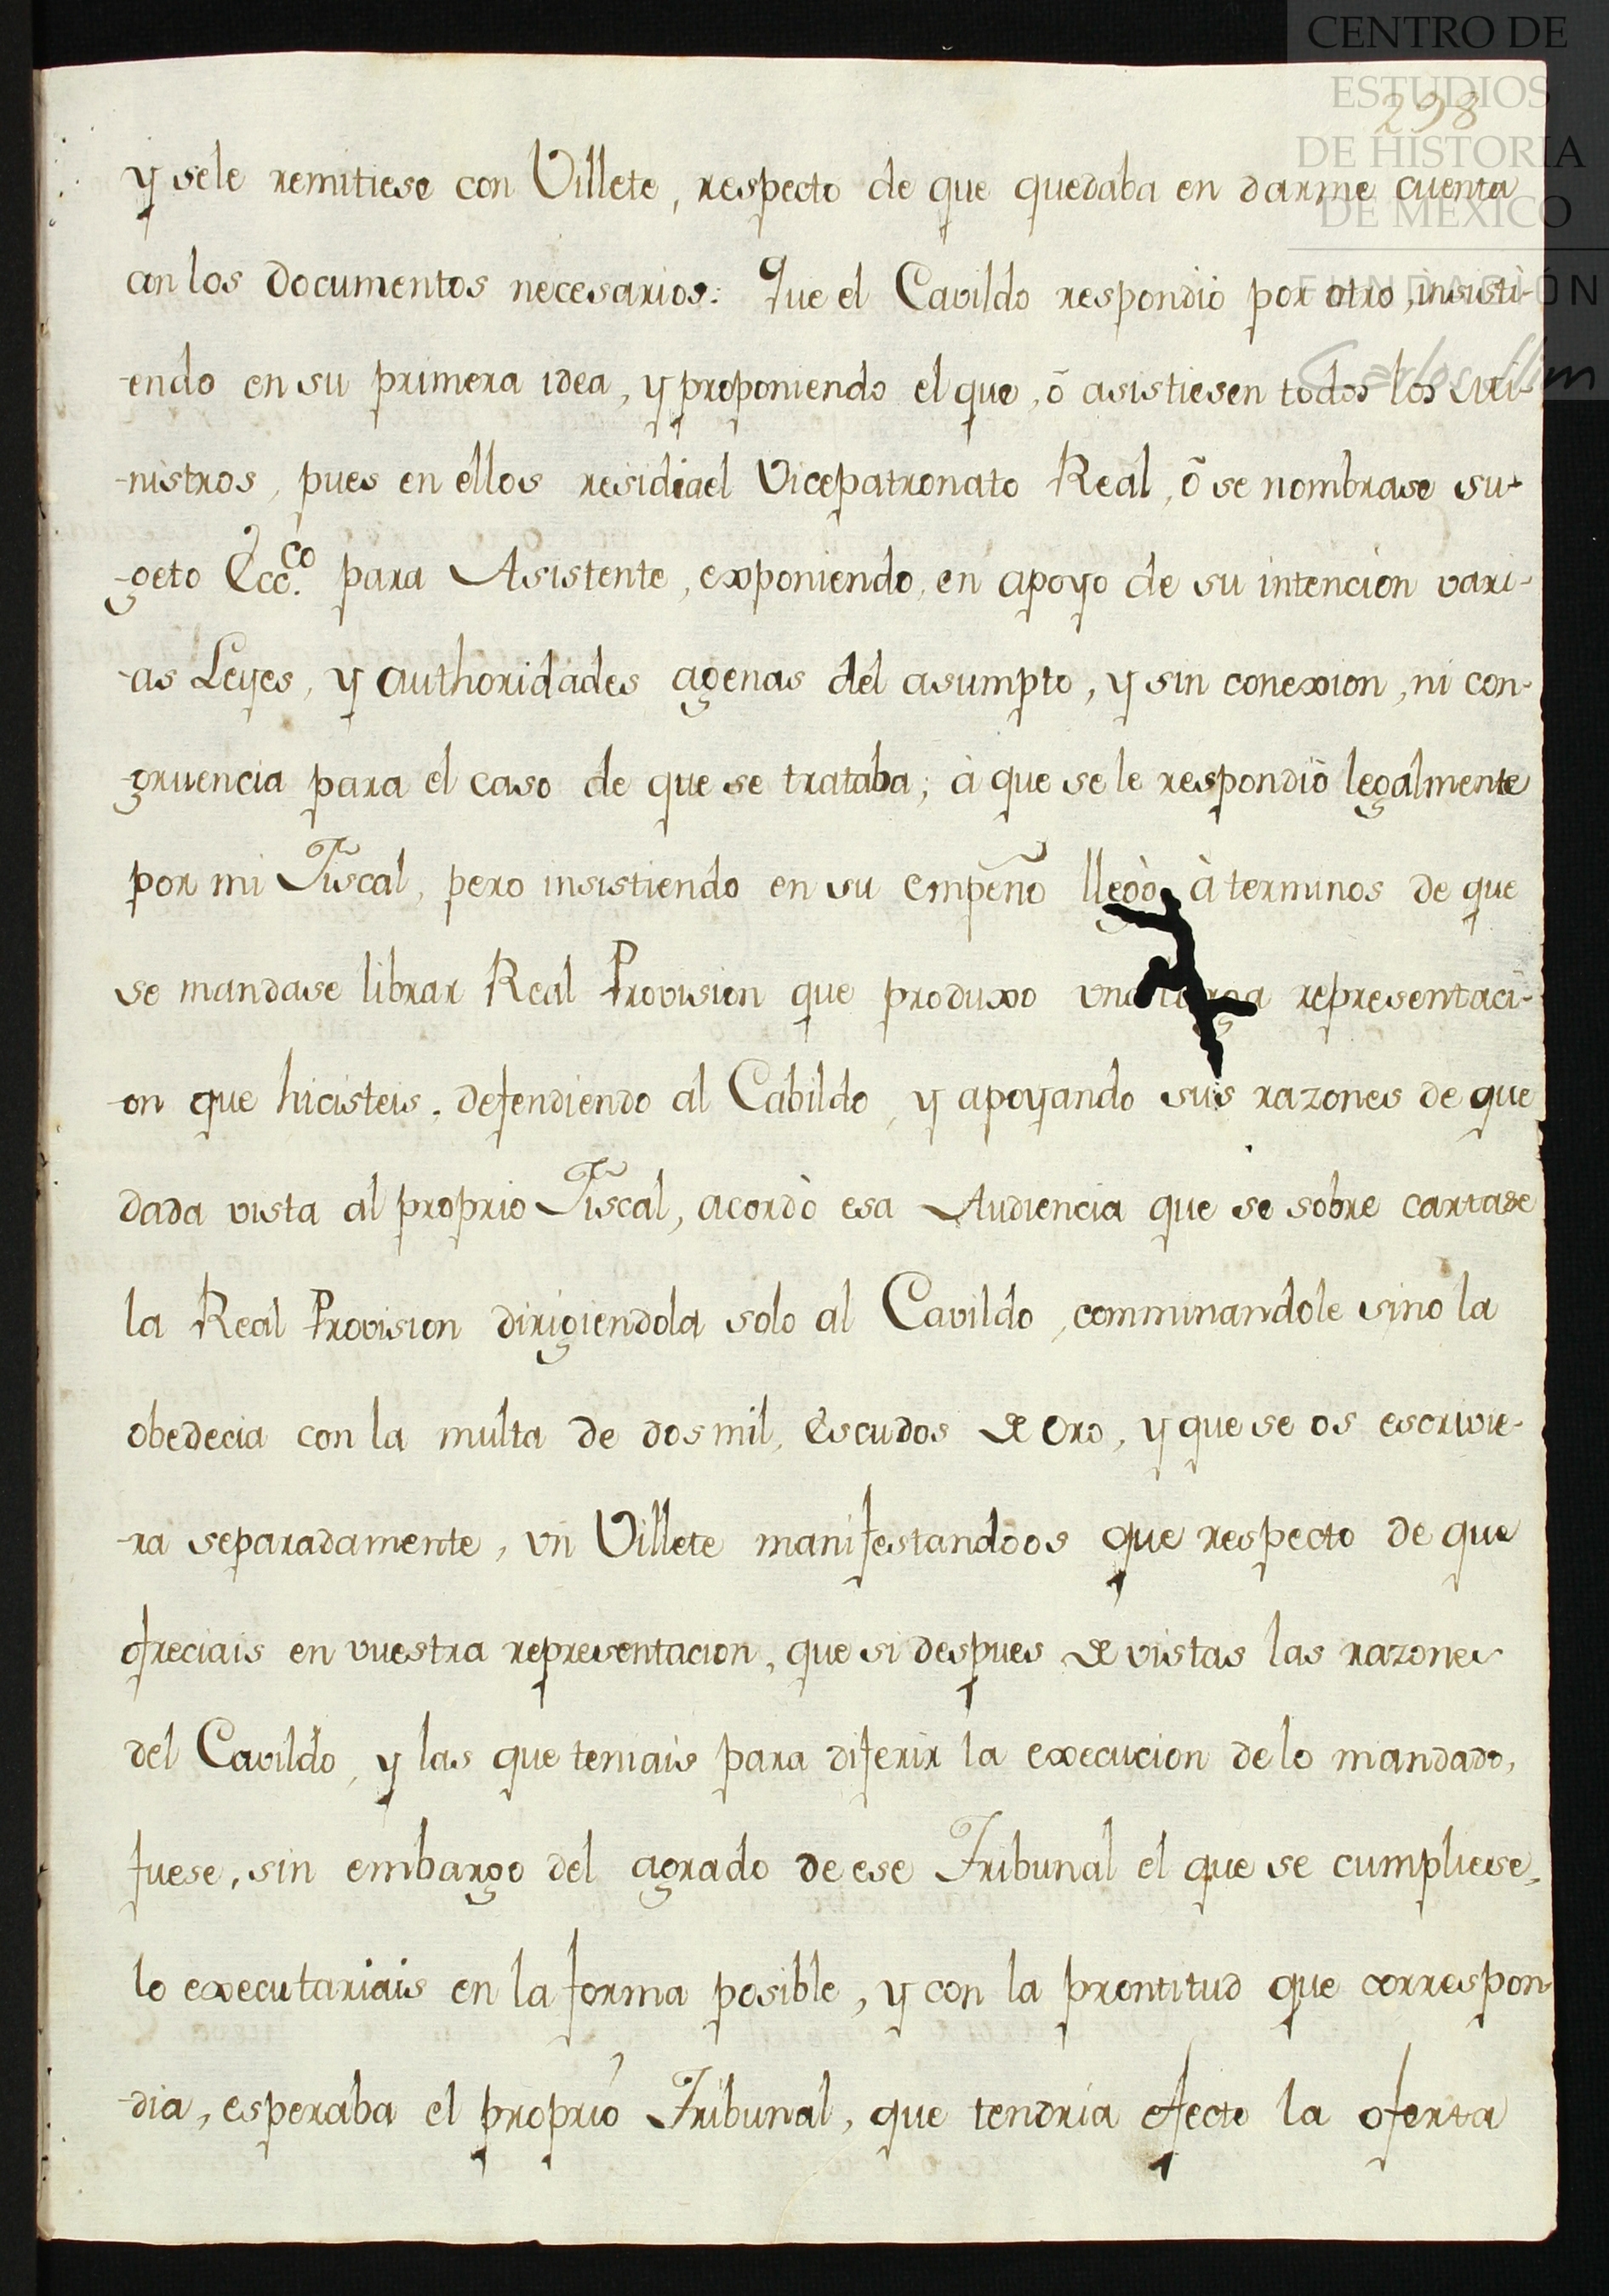 CENTRO DE
ESTUDIOS
DE HISTORIA
DE MÉXICO
FUNDACIÓN
Carlos Slim
298
y sele remitiese con Villete, respecto de que quedaba en darme cuenta
con los documentos necesarios: Que el Cavildo respondió por otro, insisti-
-endo en su primera idea, y proponiendo el que, ó asistiesen todos los Mi-
-nistros, pues en ellos residia el Vicepatronato Real, ó se nombrase su-
-geto Ecc.co para Asistente, exponiendo, en apoyo de su intención vari-
-as Leyes, y authoridades agenas del asumpto, y sin conexion, ni con-
-gruencia para el caso de que se trataba; à que se le respondió legalmente
por mi Fiscal, pero insistiendo en su empeño llegò, à terminos de que
se mandase librar Real Provision que produxo una representaci-
-on que hicisteis, defendiendo al Cabildo, y apoyando sus razones de que
dada vista al proprio Fiscal, acordò esa Audiencia que se sobre cartase
la Real Provision dirigiendola solo al Cavildo, comminandole sino la
obedecia con la multa de dos mil, Escudos de Oro, y que se os escrivie-
-ra separadamente, un Villete manifestandoos que respecto de que
ofreciais en vuestra representacion, que si despues de vistas las razones
del Cavildo, y las que teniais para diferir la execucion de lo mandado,
fuese, sin embargo del agrado de ese Tribunal el que se cumpliese,
lo executariais en la forma posible, y con la prontitud que correspon-
-dia, esperaba el proprio Tribunal, que tendria efecto la oferta